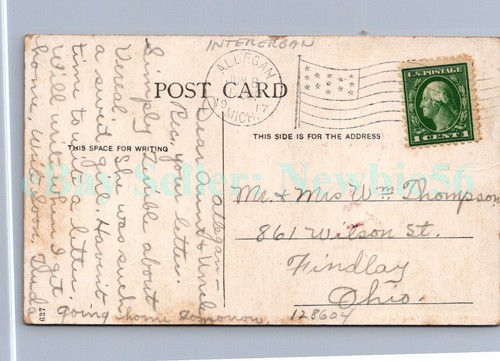 INTERERBAN
ALLEGAN
JUN 8
1917
MICH.
U.S. POSTAGE
1 CENT 1
POST CARD
THIS SPACE FOR WRITING
THIS SIDE IS FOR THE ADDRESS
Allegan -
Dear Aunt & Uncle
Rec. your letter.
Simply terrible about
Vereal. She was such
a sweet girl. Haven't
time to write a letter.
Will when I get
home. Write soon.
going home tomorrow.
Mr. & Mrs Wm Thompson
861 Wilson St.
Findlay
Ohio.
128604
627
eBay Seller: Newbie56